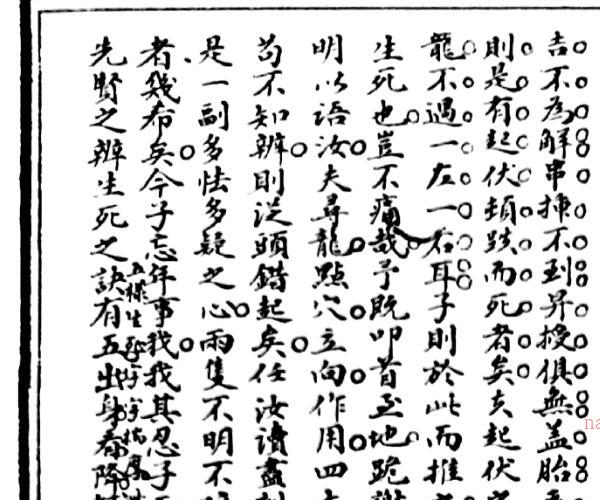 吉不為解串揀不到昇授俱無蓋胎
則是有起伏頓跌而死者矣夫起伏
龍不過一左一右耳子則於此而推
生死也豈不痛哉予既叩首至地跪謝
明以語汝夫尋龍點穴立向作用四
苟不知辨則從頭錯起矣任汝讀盡
是一副多怯多疑之心兩隻不明不
者幾希矣今子忘年事我我其忍子
先賢之辨生死之訣有五出身看降
五樣生死